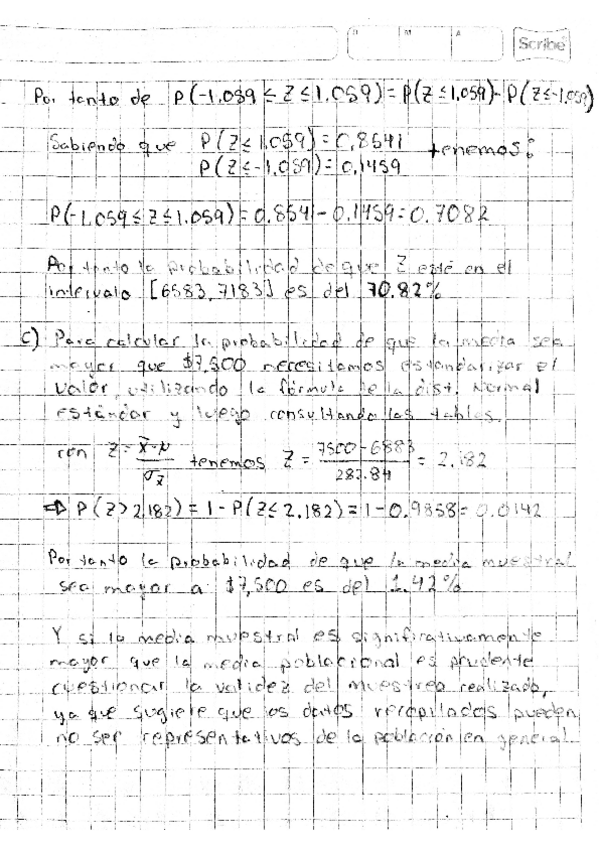 D M A Scribe
Por tanto de P(-1.059 ≤ Z ≤ 1.059) = P(Z ≤ 1.059) - P(Z ≤ -1.059)
Sabiendo que P(Z ≤ 1.059) = 0.8541
tenemos:
P(Z ≤ -1.059) = 0.1459
P(-1.059 ≤ Z ≤ 1.059) = 0.8541 - 0.1459 = 0.7082
Por tanto la probabilidad de que Z esté en el
intervalo [6583, 7183] es del 70.82%
C) Para calcular la probabilidad de que la media sea
mayor que $7,500 necesitamos estandarizar el
valor, utilizando la fórmula de la dist. Normal
estándar y luego consultando las tablas.
con Z = x̄-μ / σx̄ tenemos Z = 7500-6883 / 282.84 = 2.182
⇒ P(Z > 2.182) = 1 - P(Z ≤ 2.182) = 1 - 0.9858 = 0.0142
Por tanto la probabilidad de que la media muestral
sea mayor a $7,500 es del 1.42%
Y si la media muestral es significativamente
mayor que la media poblacional es prudente
cuestionar la validez del muestreo realizado,
ya que sugiere que los datos recopilados pueden
no ser representativos de la población en general.